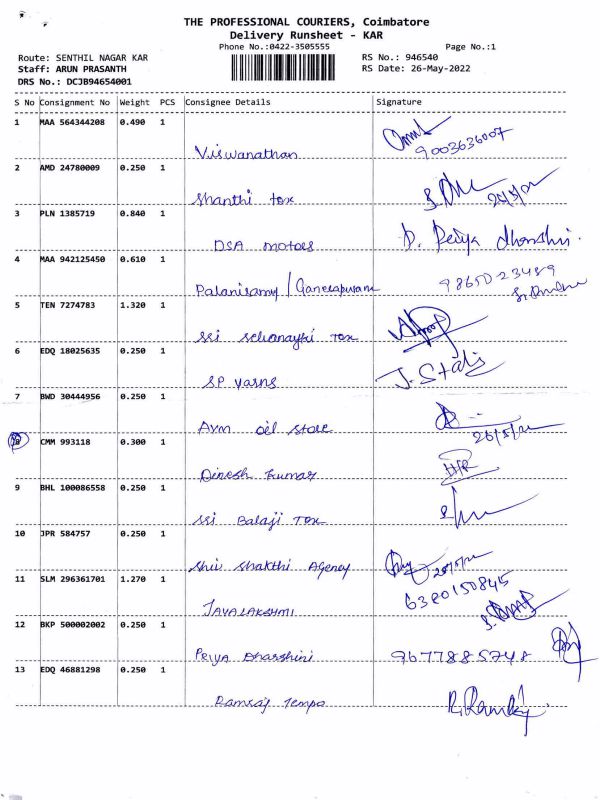 THE PROFESSIONAL COURIERS, Coimbatore
Delivery Runsheet - KAR
Phone No.:0422-3505555 Page No.:1
Route: SENTHIL NAGAR KAR RS No.: 946540
Staff: ARUN PRASANTH RS Date: 26-May-2022
DRS No.: DCJB94654001
S No Consignment No Weight PCS Consignee Details Signature
1 MAA 564344208 0.490 1
Viswanathan 9003636007
2 AMD 24780009 0.250 1
Shanthi tex
3 PLN 1385719 0.840 1
DSA motors D. Peiya dhanshri.
4 MAA 942125450 0.610 1
Palanisamy / Ganesapuram 9865023489
5 TEN 7274783 1.320 1
sri selvanayki Tex
6 EDQ 18025635 0.250 1
SP yarns
7 BWD 30444956 0.250 1
Avm oil store 26/5/22
8 CMM 993118 0.300 1
Dinesh kumar
9 BHL 100086558 0.250 1
sri Balaji Tex
10 JPR 584757 0.250 1
Shiv Shakthi Agency
11 SLM 296361701 1.270 1 6380150845
JAYALAKSHMI
12 BKP 500002002 0.250 1
Priya Dharshini 9677885748
13 EDQ 46881298 0.250 1
Ramraj Tempo